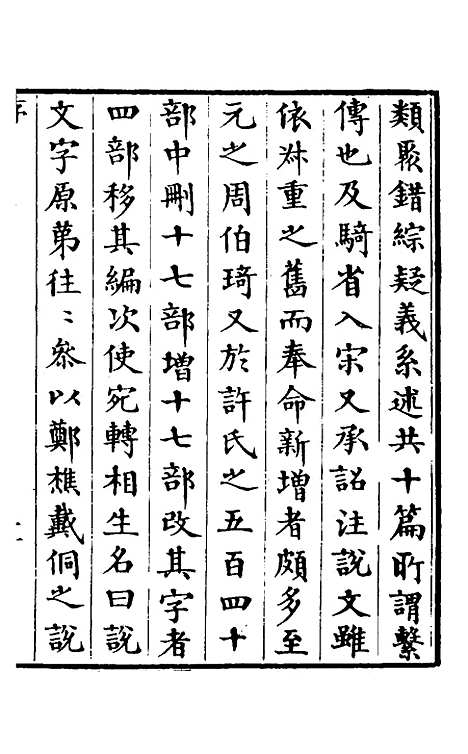 類聚錯綜疑義系述共十篇所謂繫
傳也及騎省入宋又承詔注說文雖
依叔重之舊而奉命新增者頗多至
元之周伯琦又於許氏之五百四十
部中刪十七部增十七部改其字者
四部移其編次使宛轉相生名曰說
文字原第往〻叅以鄭樵戴侗之說
序